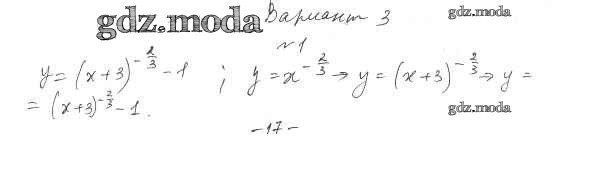 gdz.moda Вариант 3 gdz.moda
№1
y = (x+3)^{-2/3} - 1 ; y = x^{-2/3} → y = (x+3)^{-2/3} → y =
= (x+3)^{-2/3} - 1.
gdz.moda
-17-